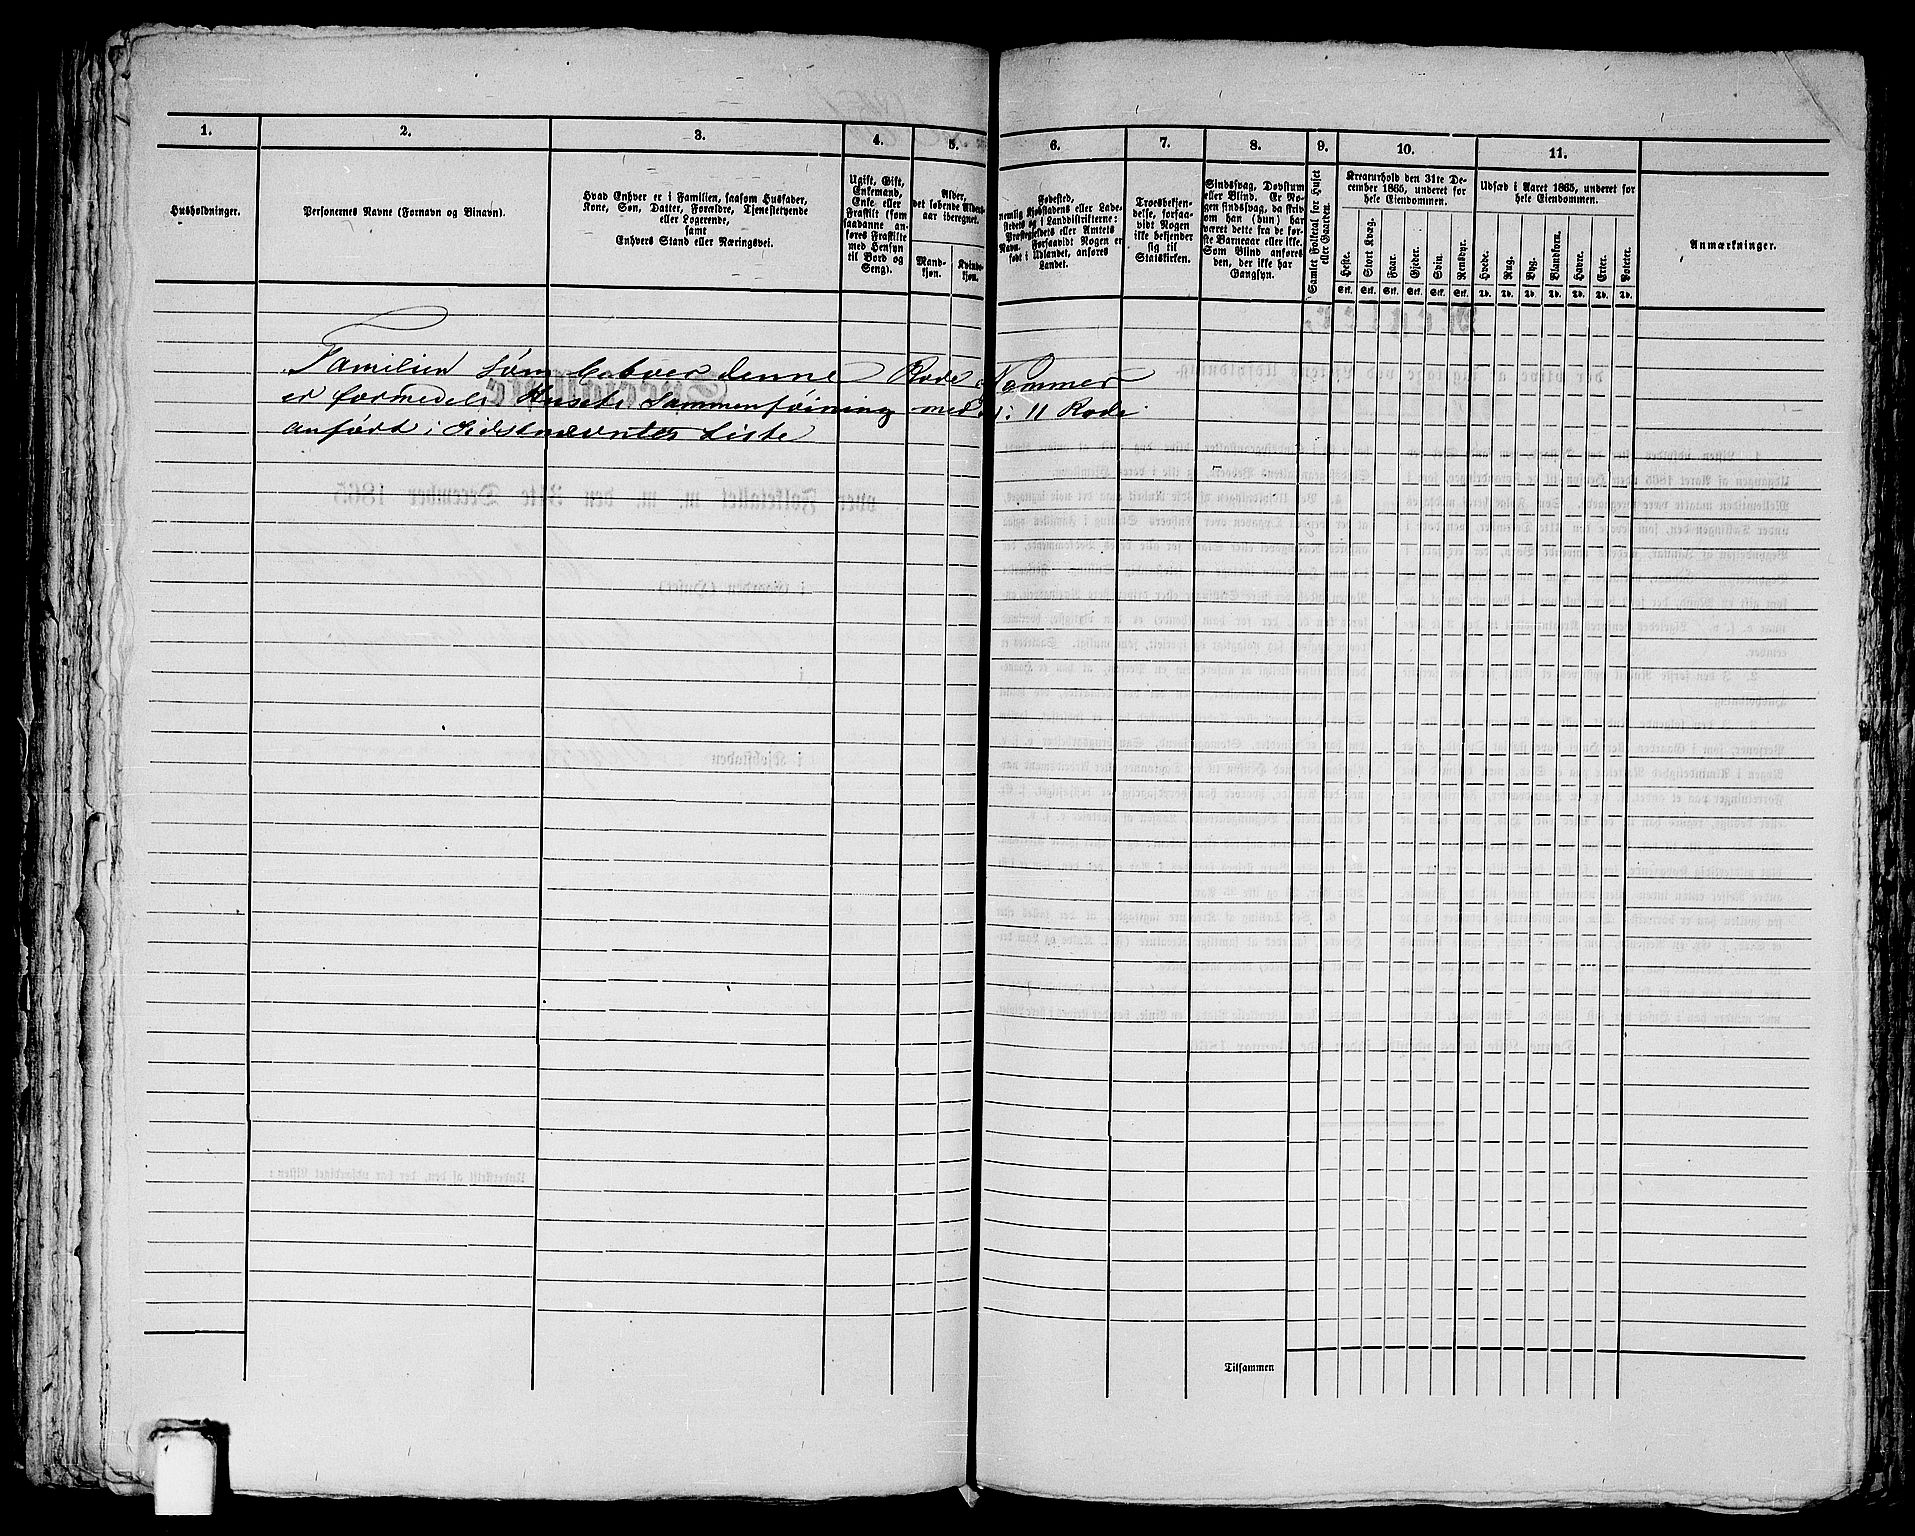 1.
2.
3.
4.
5.
6.
7.
8.
9.
10.
11.
Husholdninger.
Personernes Navne (Fornavn og Binavn).
Hvad Enhver er i Familien, saasom Husfader,
Kone, Søn, Datter, Forældre, Tjenestetyende
eller Logerende,
samt
Enhvers Stand eller Næringsvei.
Ugift, Gift,
Enkemand,
Enke eller
Fraskilt (som
saadanne an-
føres Fraskilte
med Hensyn
til Bord og
Seng).
Alder,
det løbende Alders-
aar iberegnet.
Mand-
kjøn.
Kvinde-
kjøn.
Fødested,
nemlig Kjøbstadens eller Lade-
stedets og i Landdistrikterne:
Præstegjeldets eller Amtets
Navn. Forsaavidt Nogen er
født i Udlandet, anføres
Landet.
Troesbekjen-
delse, forsaa-
vidt Nogen
ikke bekjender
sig til
Statskirken.
Sindssvag, Døvstum
eller Blind. Er No-
gen sindssvag, da skriv
om han (hun) har
været dette fra de før-
ste Barneaar eller ikke.
Som Blind anføres
den, der ikke har
Gangsyn.
Samlet Folketal for Huset
eller Gaarden.
Kreaturhold den 31te De-
cember 1865, underet for
hele Eiendommen.
Heste.
Stort Kvæg.
Faar.
Gjeder.
Svin.
Rensdyr.
Stk. Stk. Stk. Stk. Stk. Stk.
Udsæd i Aaret 1865, underet for
hele Eiendommen.
Hvede.
Rug.
Byg.
Blandkorn.
Havre.
Erter.
Poteter.
Td. Td. Td. Td. Td. Td. Td.
Anmærkninger.
Familien som beboer denne Rode Nommer
er formedels Husets Sammenføining med N: 11 Rode
anført i Sidstnævntes Liste
Tilsammen